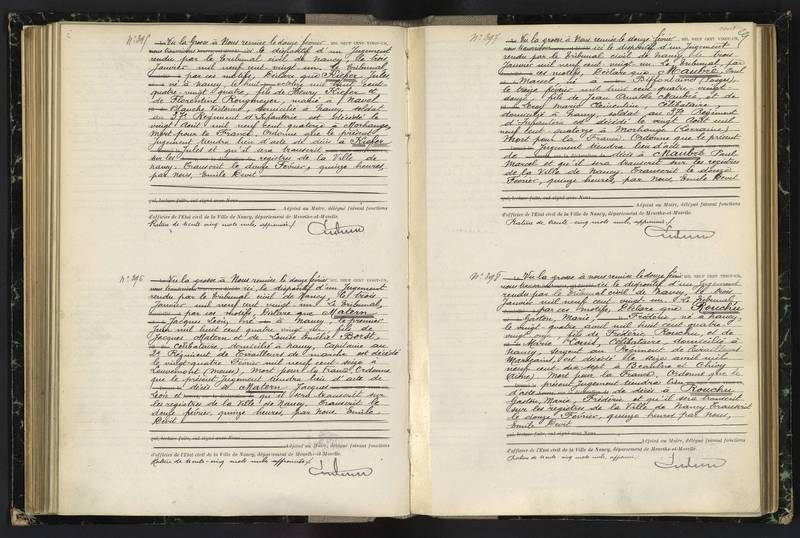 N° 395
Vu la Grosse à Nous remise le douze février MIL NEUF CENT VINGT-UN,
ici le dispositif d'un Jugement
rendu par le tribunal civil de nancy, le trois
janvier mil neuf cent vingt un. Le Tribunal,
par ces motifs, Déclare que Kiefer Jules
né à nancy, le huit octobre mil huit cent
quatre vingt quatre, fils de Henry Kiefer et
de Florentine, marié à
Blanche Victorine, domicilié à nancy, soldat
au 37e Régiment d'Infanterie est décédé le
vingt août mil neuf cent quatorze à Morhange,
mort pour la France, Ordonne que le présent
Jugement tiendra lieu d'acte de décès à Kiefer
Jules et qu'il sera transcrit
sur les registres de la Ville de
nancy. Transcrit le douze Février, quinze heures,
par nous, Emile Devit
qui, lecture faite, ont signé avec Nous
Adjoint au Maire, délégué faisant fonctions
d'officier de l'Etat civil de la Ville de Nancy, département de Meurthe-et-Moselle.
Rature de trente-cinq mots nuls, approuvée /.
N° 396
Vu la grosse à Nous remise le douze février MIL NEUF CENT VINGT-UN,
ici, le dispositif d'un Jugement
rendu par le tribunal civil de Nancy, le trois
Janvier mil neuf cent vingt un. Le Tribunal,
par ces motifs, Déclare que Matern
Jacques Léon, né à Nancy, le premier
Juin mil huit cent quatre vingt un, fils de
Jacques Matern et de Louise Emélie Borst,
Célibataire, domicilié à nancy, Capitaine au
2e Régiment de Tirailleurs de marche est décédé
le vingt quatre Février mil neuf cent seize à
Louvemont (Meuse), Mort pour la France, Ordonne
que le présent jugement tiendra lieu d'acte de
décès à Matern Jacques
Léon et qu'il sera transcrit sur
les registres de la Ville de Nancy. Transcrit le
douze février, quinze heures, par nous Emile
Devit
qui, lecture faite, ont signé avec Nous
Adjoint au Maire, délégué faisant fonctions
d'officier de l'Etat civil de la Ville de Nancy, département de Meurthe-et-Moselle.
Rature de trente-cinq mots nuls approuvée /.
N° 397
Vu la grosse à Nous remise le douze février MIL NEUF CENT VINGT-UN,
ici le dispositif d'un Jugement
rendu par le Tribunal civil de nancy le trois
janvier mil neuf cent vingt un. Le Tribunal, par
ces motifs, Déclare que Maubré Paul
Marcel, né à Biffontaine (Vosges),
le treize février mil huit cent quatre vingt
fils de Jean Maubré et de
Marie Clémentine, Célibataire,
domicilié à nancy, soldat au 37e Régiment
d'Infanterie est décédé le vingt août mil
neuf cent quatorze à Morhange (Lorraine)
Mort pour la France, Ordonne que le présent
Jugement tiendra lieu d'acte
de décès à Maubré Paul
Marcel et qu'il sera transcrit sur les registres
de la Ville de Nancy. Transcrit le douze
Février, quinze heures, par nous, Emile Devit
qui, lecture faite, ont signé avec Nous
Adjoint au Maire, délégué faisant fonctions
d'officier de l'Etat civil de la Ville de Nancy, département de Meurthe-et-Moselle.
Rature de trente-cinq mots nuls, approuvée /.
N° 398
Vu la grosse à nous remise le douze février MIL NEUF CENT VINGT-UN,
ici le dispositif d'un Jugement
rendu par le Tribunal civil de Nancy, le trois
janvier mil neuf cent vingt un. Le Tribunal,
par ces motifs, Déclare que Rouchu
Gaston, Marie, Frédéric né à nancy,
le vingt quatre août mil huit cent quatre
vingt, fils de Frédéric Rouchu et de
Marie, Célibataire, domicilié à
Nancy, sergent au Régiment de Tirailleurs
Marocains, est décédé le seize avril mil
neuf cent dix sept à
(Aisne), Mort pour la France, Ordonne que le
présent Jugement tiendra lieu
d'acte de décès à Rouchu
Gaston, Marie, Frédéric et qu'il sera transcrit
sur les registres de la Ville de Nancy. Transcrit
le douze Février, quinze heures, par nous,
Emile Devit
qui, lecture faite, ont signé avec Nous
Adjoint au Maire, délégué faisant fonctions
d'officier de l'Etat civil de la Ville de Nancy, département de Meurthe-et-Moselle.
Rature de trente-cinq mots nuls, approuvée /.